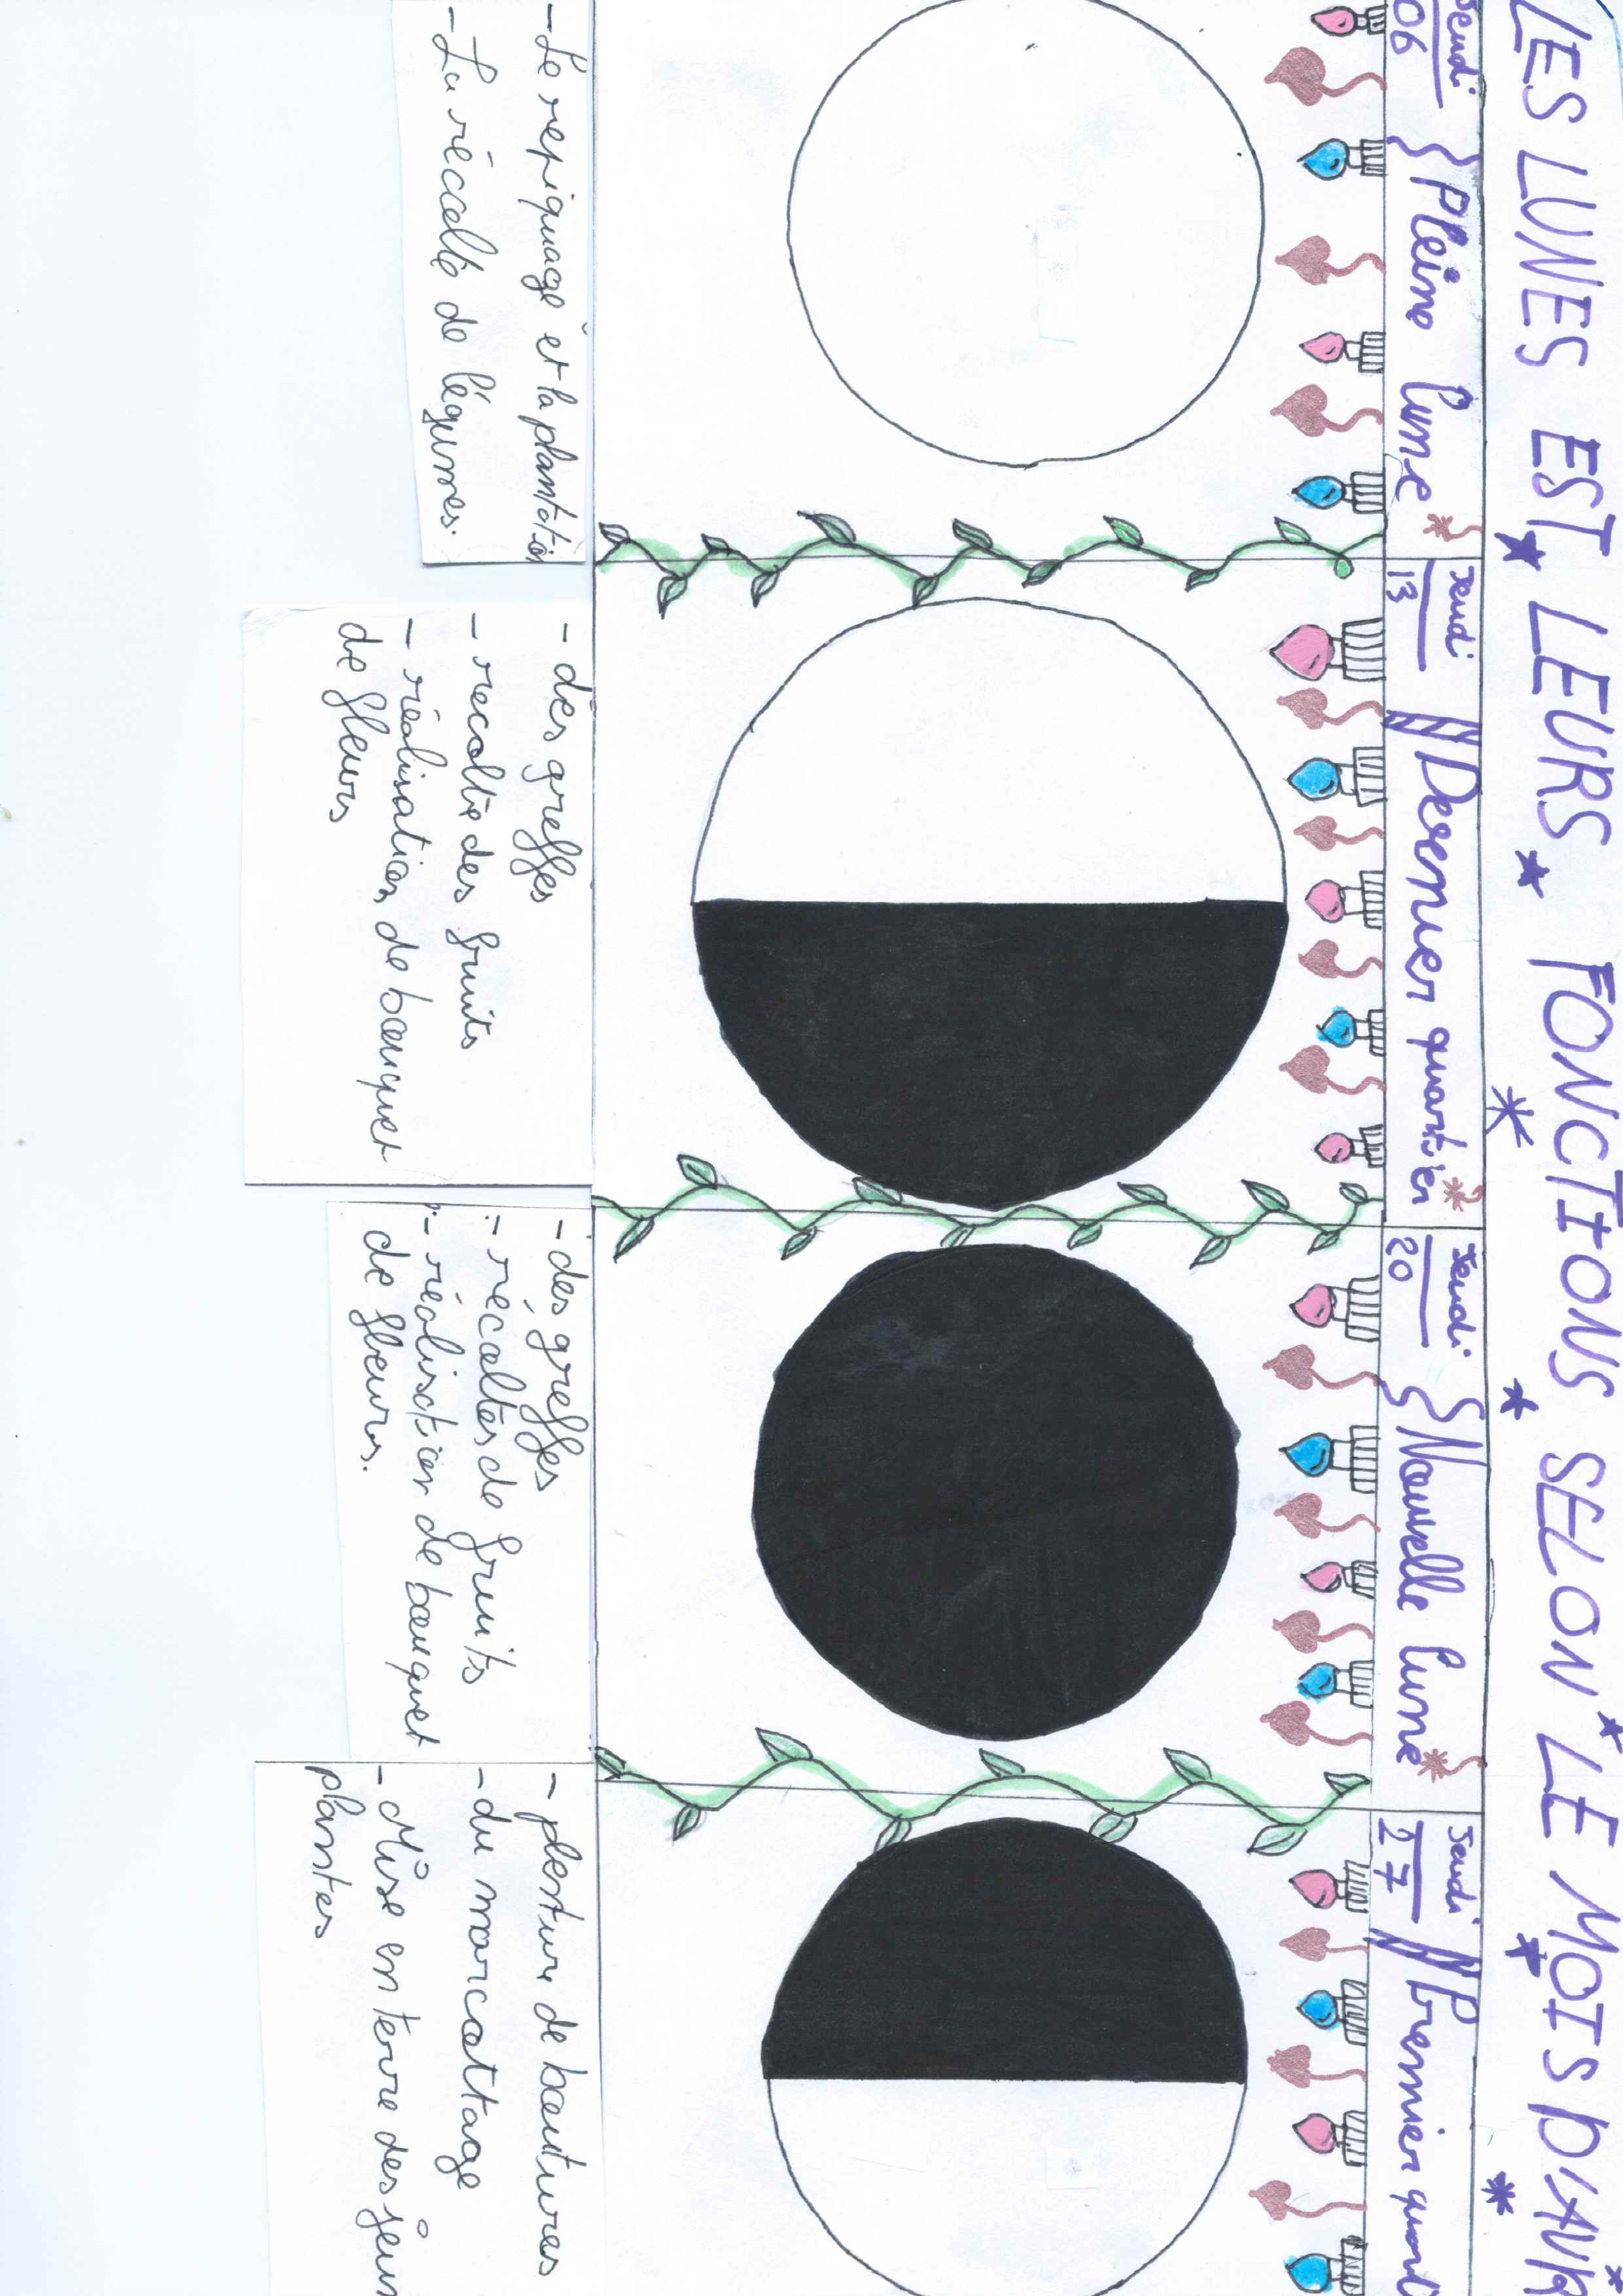 LES LUNES EST LEURS FONCTIONS SELON LE MOIS D'AVR
Jeudi
06
Pleine lune
- Le repiquage et la plantation
- La récolte de légumes.
Jeudi
13
Dernier quartier
- des greffes
- recolte des fruits
- réalisation de bouquet
de fleurs
Jeudi
20
Nouvelle lune
- des greffes
- récoltes de fruits
- réalisation de bouquet
de fleurs.
Jeudi
27
Premier quarti
- de boutures
- du marcottage
- Mise en terre des jeun
plantes